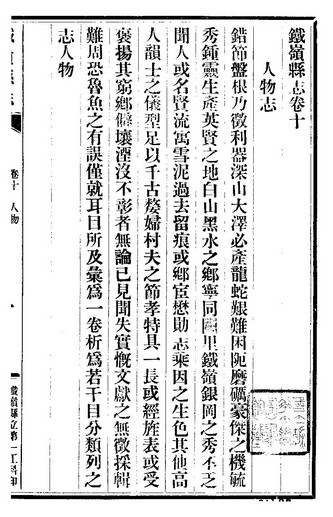 鐵嶺縣志卷十
人物志
錯節盤根乃徵利器深山大澤必產龍蛇艱難困阨磨礪豪傑之機毓
秀鍾靈生產英賢之地白山黑水之鄉寧同 里鐵嶺銀岡之秀不乏
聞人或名賢流寓雪泥過去留痕或鄉宦懋勛志乘因之生色其他高
人韻士之儀型足以千古嫠婦村夫之節孝特具一長或經旌表或受
褒揚其窮鄉僻壤湮沒不彰者無論已見聞失實慨文獻之無徵採輯
難周恐魯魚之有誤僅就耳目所及彙爲一卷析爲若干目分類列之
志人物
卷十 人物
鐵嶺縣立第一工科印